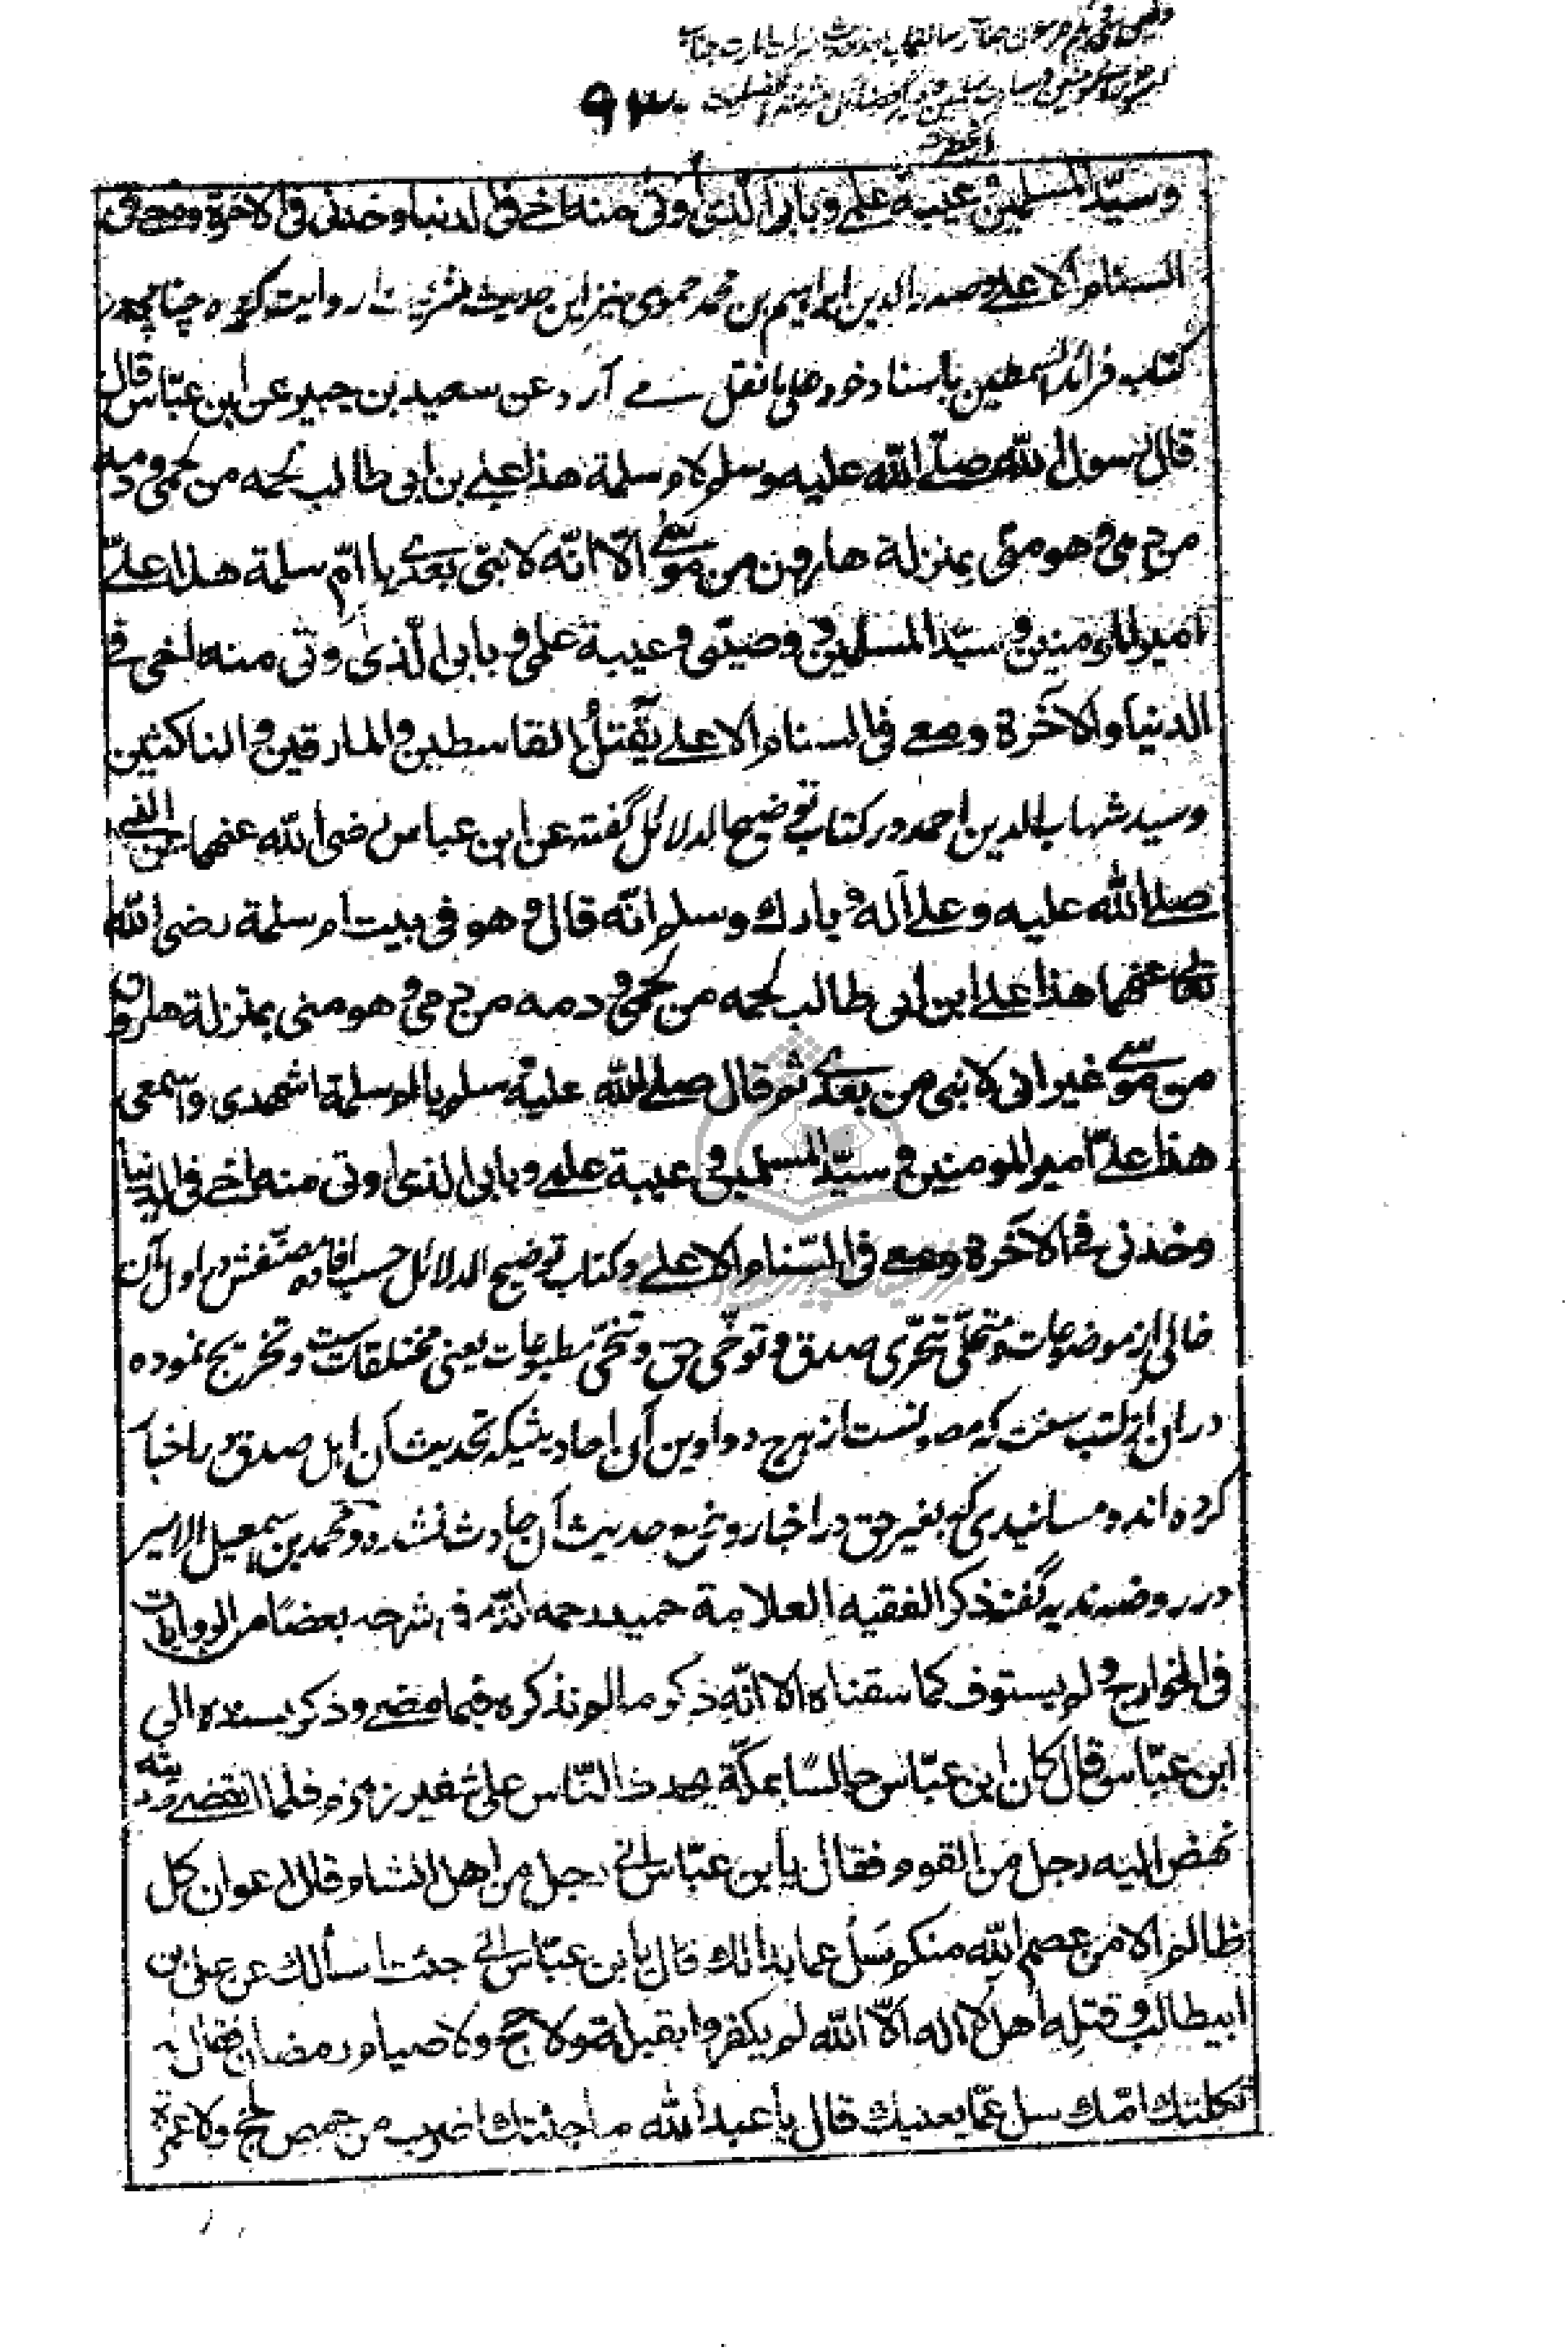 ۹۳۰
وسيّد المسلمين عيبة علمي وبابي الّذي اوتى منه اخي في الدنيا وخدني في الآخرة ومعي في
السنام الاعلى وصدر الدين ابراهيم بن محمد حموى نيز اين حديث شريف را روايت كرده چنانچه در
كتاب فرائد السمطين باسناد خود على ما نقل مے آرد عن سعيد بن جبير عن ابن عبّاس قال
قال رسول الله صلّى الله عليه وسلم لام سلمة هذا على بن ابى طالب لحمه من لحمي ودمه
من دمي وهو منّى بمنزلة هارون من موسى الّا انّه لا نبيّ بعدي يا امّ سلمة هذا عليّ
امير المؤمنين وسيّد المسلمين ووصيّي وعيبة علمي وبابي الّذي اوتى منه اخى في
الدنيا والآخرة ومعي في السنام الاعلى يقتل القاسطين والمارقين والناكثين
وسيد شهاب الدين احمد در كتاب توضيح الدلائل گفته عن ابن عباس رضى الله عنهما عن النبي
صلى الله عليه وعلى آله وبارك وسلم انّه قال وهو في بيت ام سلمة رضى الله
تعالى عنهما هذا على ابن ابى طالب لحمه من لحمي ودمه من دمي وهو منى بمنزلة هارون
من موسى غير انى لا نبى من بعدي ثم قال صلى الله عليه وسلم يا ام سلمة اشهدى واسمعى
هذا علىّ امير المومنين وسيّد المسلمين وعيبة علمي وبابى الذى اوتى منه اخى في الدنيا
وخدنى في الآخرة ومعي في السّنام الاعلى وكتاب توضيح الدلائل حسب افاده مصنّفش در اول آن
خالى از موضوعات ومتحلّى بتحرّى صدق وتوخّى حق وتنحّى مطبوعات يعنى مختلقات ست وتخريج نموده
در ان از كتب سنت كه مصونست از هرج دواوين آن احاديثيكه تحديث آن اهل صدق در اخبار
كرده اند ومسانيدى كه بغير حق در اخبار وحديث آن حادث نشده ومحمد بن اسمعيل الامير
در روضه نديه گفته ذكر الفقيه العلامة حميد رحمه الله في شرحه بعضًا من الروايات
في الخوارج ولم يستوف كما سقناه الا انّه ذكر ما لم نذكره فيما مضى وذكر بسنده الى
ابن عبّاس قال كان ابن عبّاس جالسًا بمكّة يحدث النّاس على شفير زمزم فلما انقضى حديثه
نهض اليه رجل من القوم فقال يا ابن عبّاس انى رجل من اهل الشام قال اعوان كل
ظالم الا من عصم الله منكم سَل عما بدا لك قال يا ابن عبّاس انى جئت اسألك عن على بن
ابيطالب وقتله اهل لا اله الّا الله لم يكفروا بقبلة ولا حج ولا صيام رمضان فقال له
ثكلتك امّك سل عمّا يعنيك قال يا عبد الله ما جئتك اضرب من حمص لحج ولا عمرة